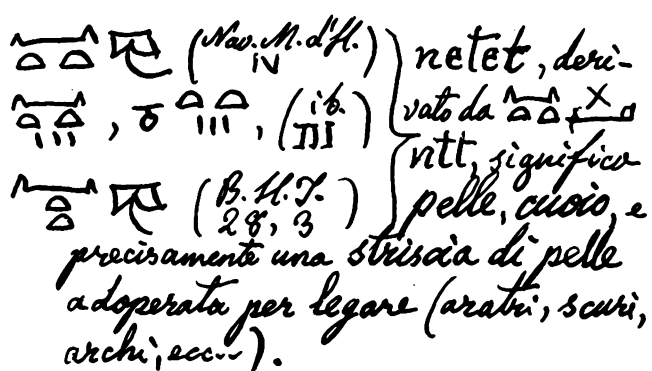 (Nav. M. d'H. IV) netet, deri-
, (ib. III) vato da
ntt, significa
(B. H. I. 28, 3) pelle, cuoio, e
precisamente una striscia di pelle
adoperata per legare (aratri, scuri,
archi, ecc..).